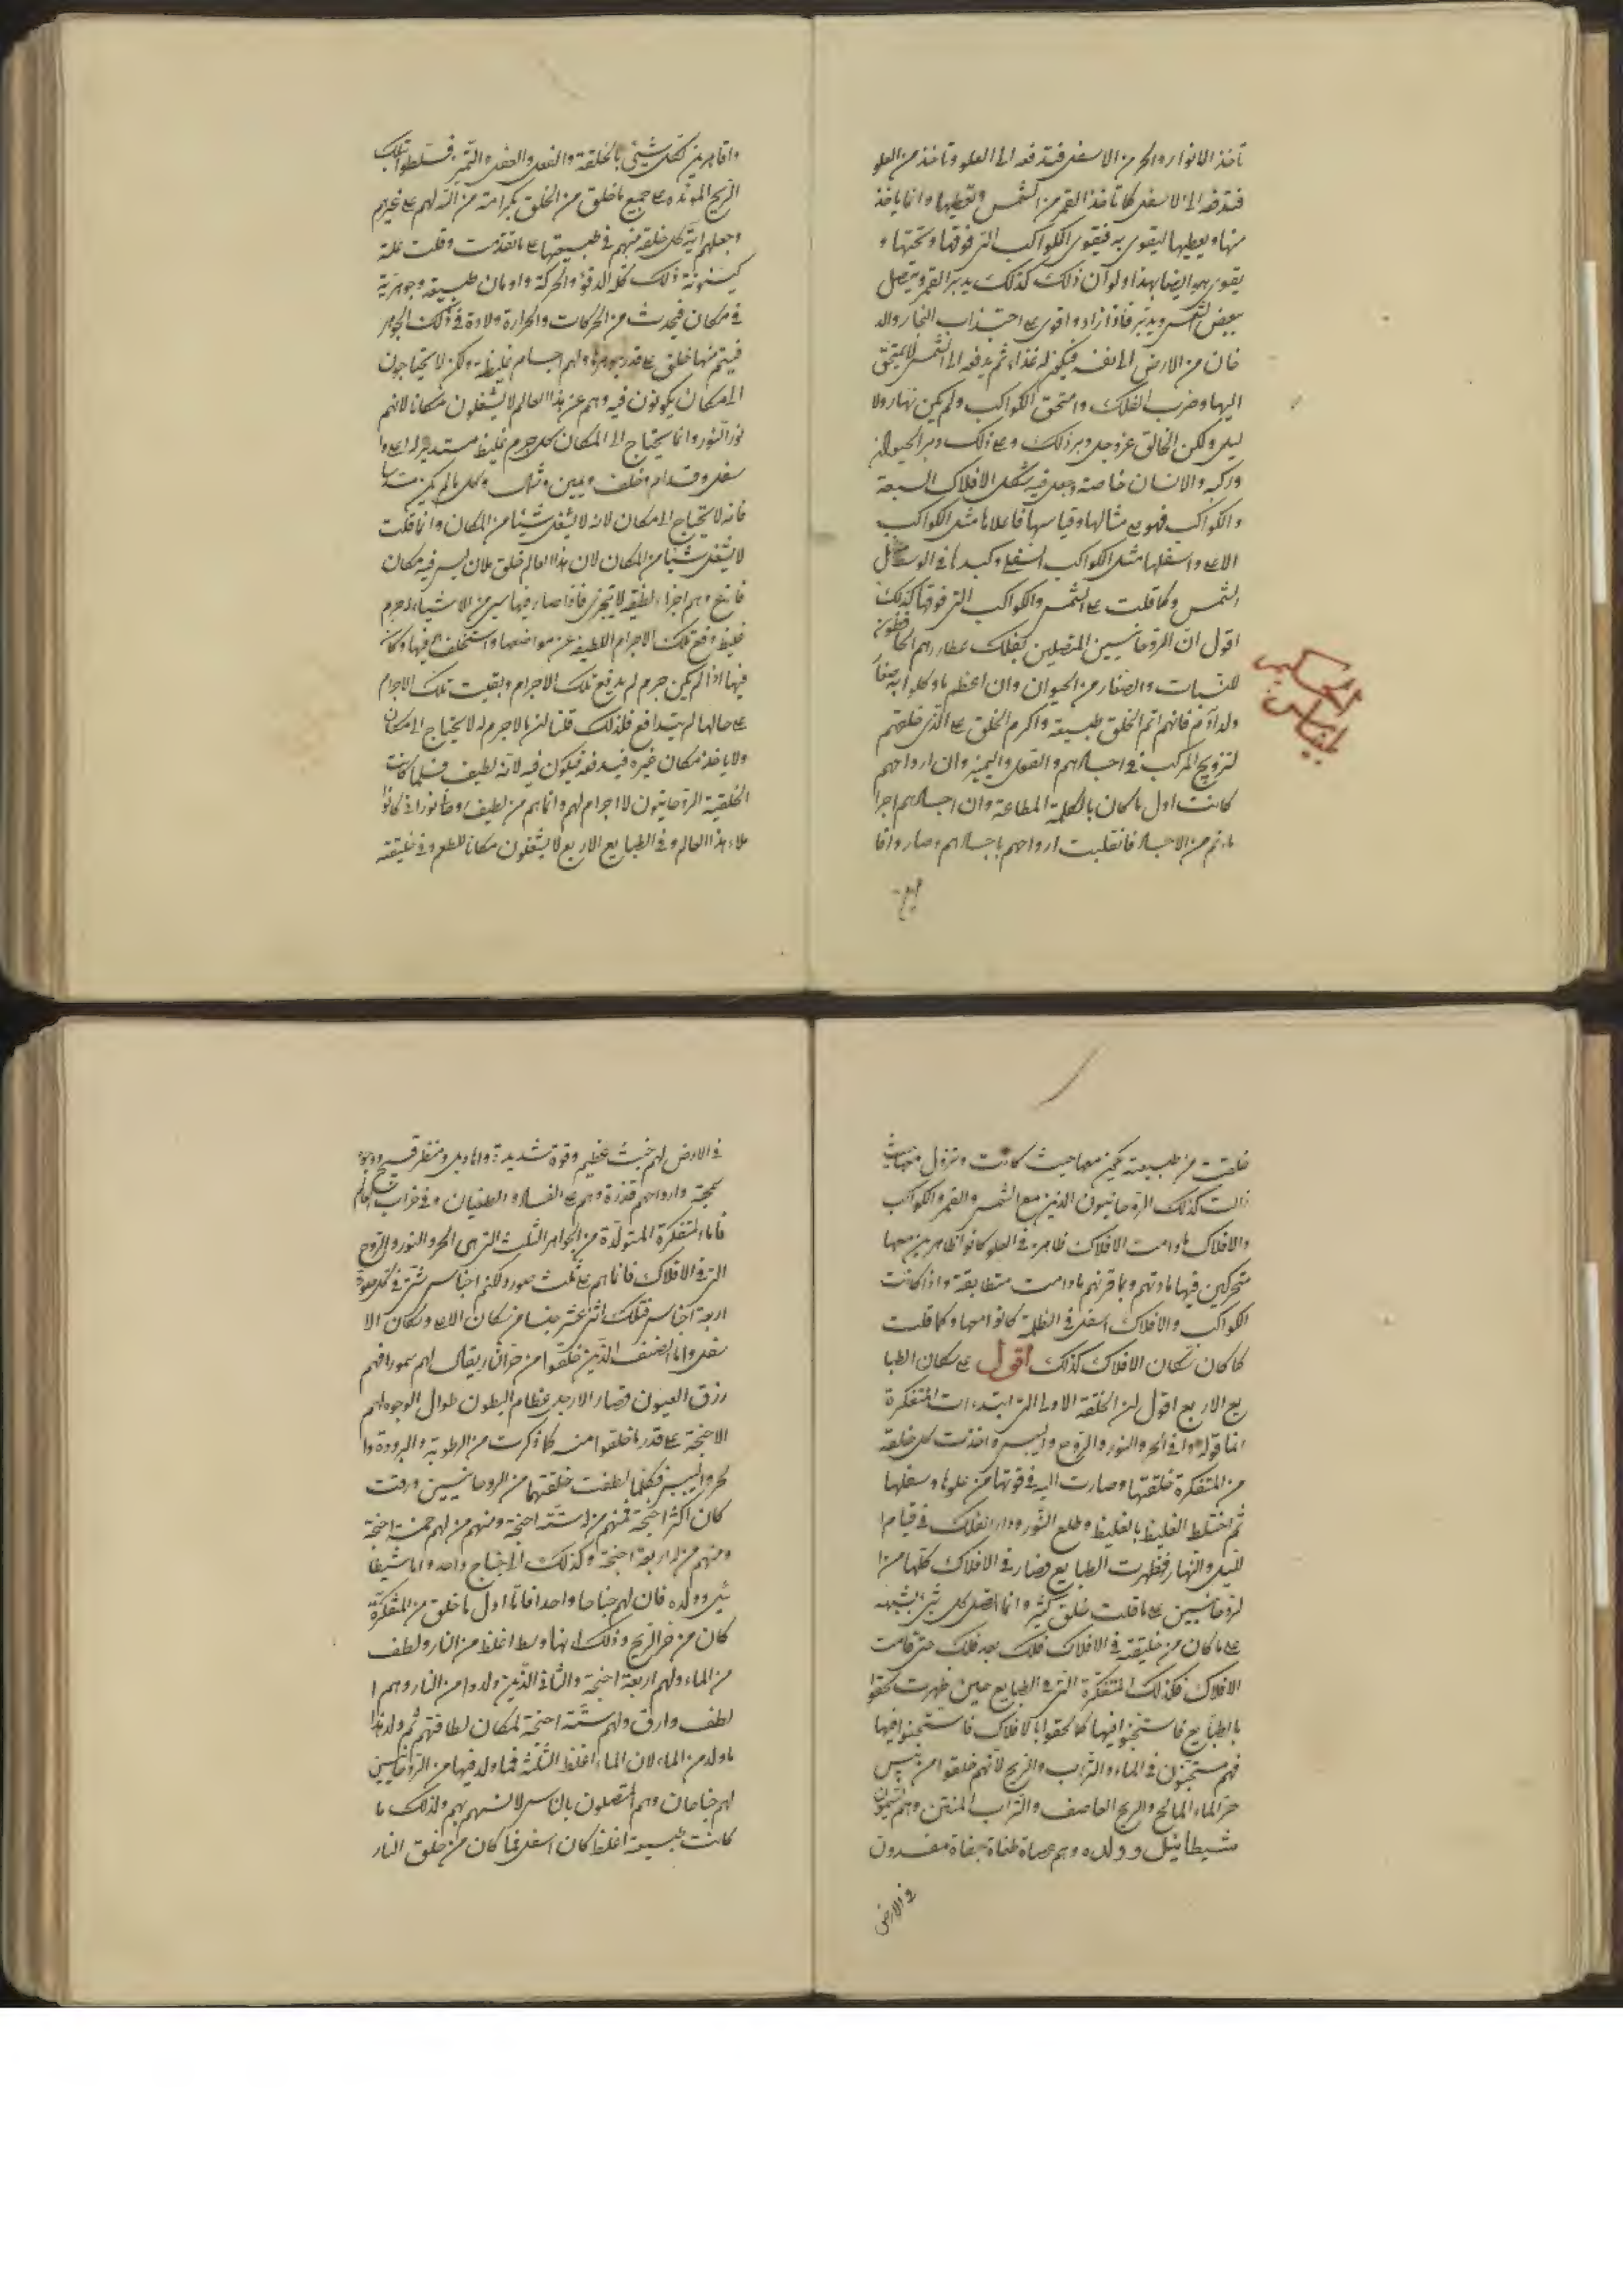 تأخذ الانوار والحر من الاسفل فتدفعه الى العلو وتأخذ من العلو
فتدفعه الى الاسفل كما تأخذ القمر من الشمس وتعطيها وانما ياخذ
منها ويعطيها ليقوى به فيقوى الكواكب التى فوقها وتحتها و
يقوى بهم ايضا بهذا ولو ان ذلك كذلك يدبر القمر ويتصل
ببعض الشمس ويدبر فاذا زاد واقوى على اجتذاب البخار والد
خان من الارض الى نفسه فيكون له غذاء ثم يدفعه الى الشمس لامتحق
اليها وخرب الفلك وامتحق الكواكب ولم يكن نهار ولا
ليل ولكن الخالق عز وجل دبر ذلك وعلى ذلك دبر الحيوان
وركبه والانسان خاصة وجعل فيه شكل الافلاك السبعة
والكواكب فهو على مثالها وقياسها فاعلاها مثل الكواكب
الاعلى واسفلها مثل الكواكب السفلى وكبدها فى الوسط مثل
الشمس وكما قلت على الشمس والكواكب التى فوقها كذلك
اقول ان الروحانيين المتصلين بفلك عطارد هم الحافظون
للنبات والصغار من الحيوان وان اعظم ما وكلوا به صغار
ولد آدم فانهم اتم الخلق طبيعة واكرم الخلق على الذى خلقهم
لتزويج المركب فى اجسادهم والقول والتميز وان ارواحهم
كانت اول ما كان بالكلمة المطاعة وان اجسادهم اخر
ما تم من الاجساد فانقلبت ارواحهم باجسادهم وصاروا قا
واقاهرين لكل شيئ بالخلقة والفعل والعقل والتميز فسلطوا بتلك
الريح المؤيدة على جميع ما خلق من الخلق بكرامة من الله لهم على غيرهم
وجعلهم اية كل خلقة منهم فى طبيعتها على ما تقدمت وقلت علة
كينونة ذلك كله الدفؤ والحركة وادمان طبيعة وجوهرية
فى مكان فيحدث من الحركات والحرارة ولادة فى ذلك الجوهر
فيتم منها خلق على قدر جوهرها ولهم اجسام غليظة ولكن لا يحتاجون
الى مكان يكونون فيه وهم عن هذا العالم لا يشغلون مكانا لانهم
نور النور وانما يحتاج الى المكان كل جرم غليظ مستدير له اعلى وا
سفل وقدام وخلف ويمين وشمال وكل ما لم يكن
فانه لا يحتاج الى مكان لانه لا يشغل شيئا من المكان وانما قلت
لا يشغل شيئا من المكان لان هذا العالم خلق ملان ليس فيه مكان
فارغ وهم اجزاء لطيفة لا تتجزى فاذا صار فيها شىء من الاشياء له جرم
غليظ دفع تلك الاجرام اللطيفة عن مواضعها واستخلف فيها وكان
فيها اذا لم يكن جرم لم يدفع تلك الاجرام وبقيت تلك الاجرام
على حالها لم يتدافع فلذلك قلنا لمن لا جرم له لا يحتاج الى مكان
ولا ياخذ مكان غيره فيدفعه فيكون فيه لانه لطيف فلما كانت
الخلقية الروحانيون لا اجرام لهم وانما هم من لطيف وضأ نورانى كانوا
ملاء هذا العالم وفى الطبايع الاربع لا يشغلون مكانا للطفه وفى خليقته
خلقت من طبيعته تكون معها حيث كانت وتزول معها حيث
زالت كذلك الروحانيون الذين مع الشمس والقمر والكواكب
والافلاك ما دامت الافلاك ظاهرة فى العلو كانوا ظاهرين معها
متحركين فيها ما دتهم وما قرنهم ما دامت متطابقة واذا كانت
الكواكب والافلاك اسفل فى الظلمة كانوا معها وكما قلت
كما كان سكان الافلاك كذلك اقول على سكان الطبا
يع الاربع اقول ان الخلقة الاولى التى ابتدءات المتفكرة
انما قوله وا فى الحر والنور والروح واليبس واخذت كل خلقة
من المتفكرة خلقتها وصارت اليه فى قوتها من علوها وسفلها
ثم اختلط الغليظ بالغليظ وطلع الثور ودار الفلك فى قيام ا
لليل والنهار فظهرت الطبايع فصار فى الافلاك كلها من ا
لروحانيين على ما قلت خلق كثير وانما اتصل كل شئ الشبهه
على ما كان من خليقته فى الافلاك فلك بعد فلك حتى قامت
الافلاك فكذلك المتفكرة التى فى الطبايع حين ظهرت لحقوا
بالطبايع فاستجنوا فيها كما لحقوا بالافلاك فاستجنوا فيها
فهم مستجنون فى الماء والتراب والريح لانهم خلقوا من يبس
حر الماء المالح والريح العاصف والتراب المنتن وهم
مشيطائيل وولده وهم عصاة طغاة جفاة مفسدون
فى الارض
فى الارض لهم خبث عظيم وقوة شديدة وانا ويل ومنظر قبيح ووجوه
سمجة وارواحهم قذرة وهم على الفساد والطغيان وفى خراب
فاما المتفكرة المتولدة من الجواهر الثلث التى هى الحر والنور والروح
التى فى الافلاك فانما هم على ثلث صور ولكنهم اجناس شتى فى كل صورة
اربعة اجناس فتلك اثنى عشر جنسا من سكان الاعلى وسكان الا
سفل واما الصنف الذين خلقوا من حر النار يقال لهم سمورا فهم
زرق العيون قصار الارجل عظام البطون طوال الوجوه لهم
الاجنحة على قدر ما خلقوا منه كما ذكرت من الرطوبة والبرودة وا
لحر واليبس فكلما لطفت خلقتهما من الروحانيين ورقت
كان اكثر اجنحة فمنهم من له ستة اجنحة ومنهم من لهم خمسة اجنحة
ومنهم من له اربعة اجنحة وكذلك الى جناح واحد واما شيطا
ئيل وولده فان لهم جناحا واحدا فاما اول ما خلق من المتفكرة
كان من حر الريح وذلك انها وسط اغلظ من النار ولطف
من الماء ولهم اربعة اجنحة والثانى الذين ولدوا من النار وهم ا
لطف وارق ولهم ستة اجنحة لمكان لطافتهم ثم ولد
ما ولد من الماء لان الماء اغلظ الثلثة فما ولد فيها من الروحانيين
لهم جناحان وهم المتصلون بالناس لانسهم بهم ولذلك ما
كانت طبيعته اغلظ كان اسفل فما كان من خلق النار